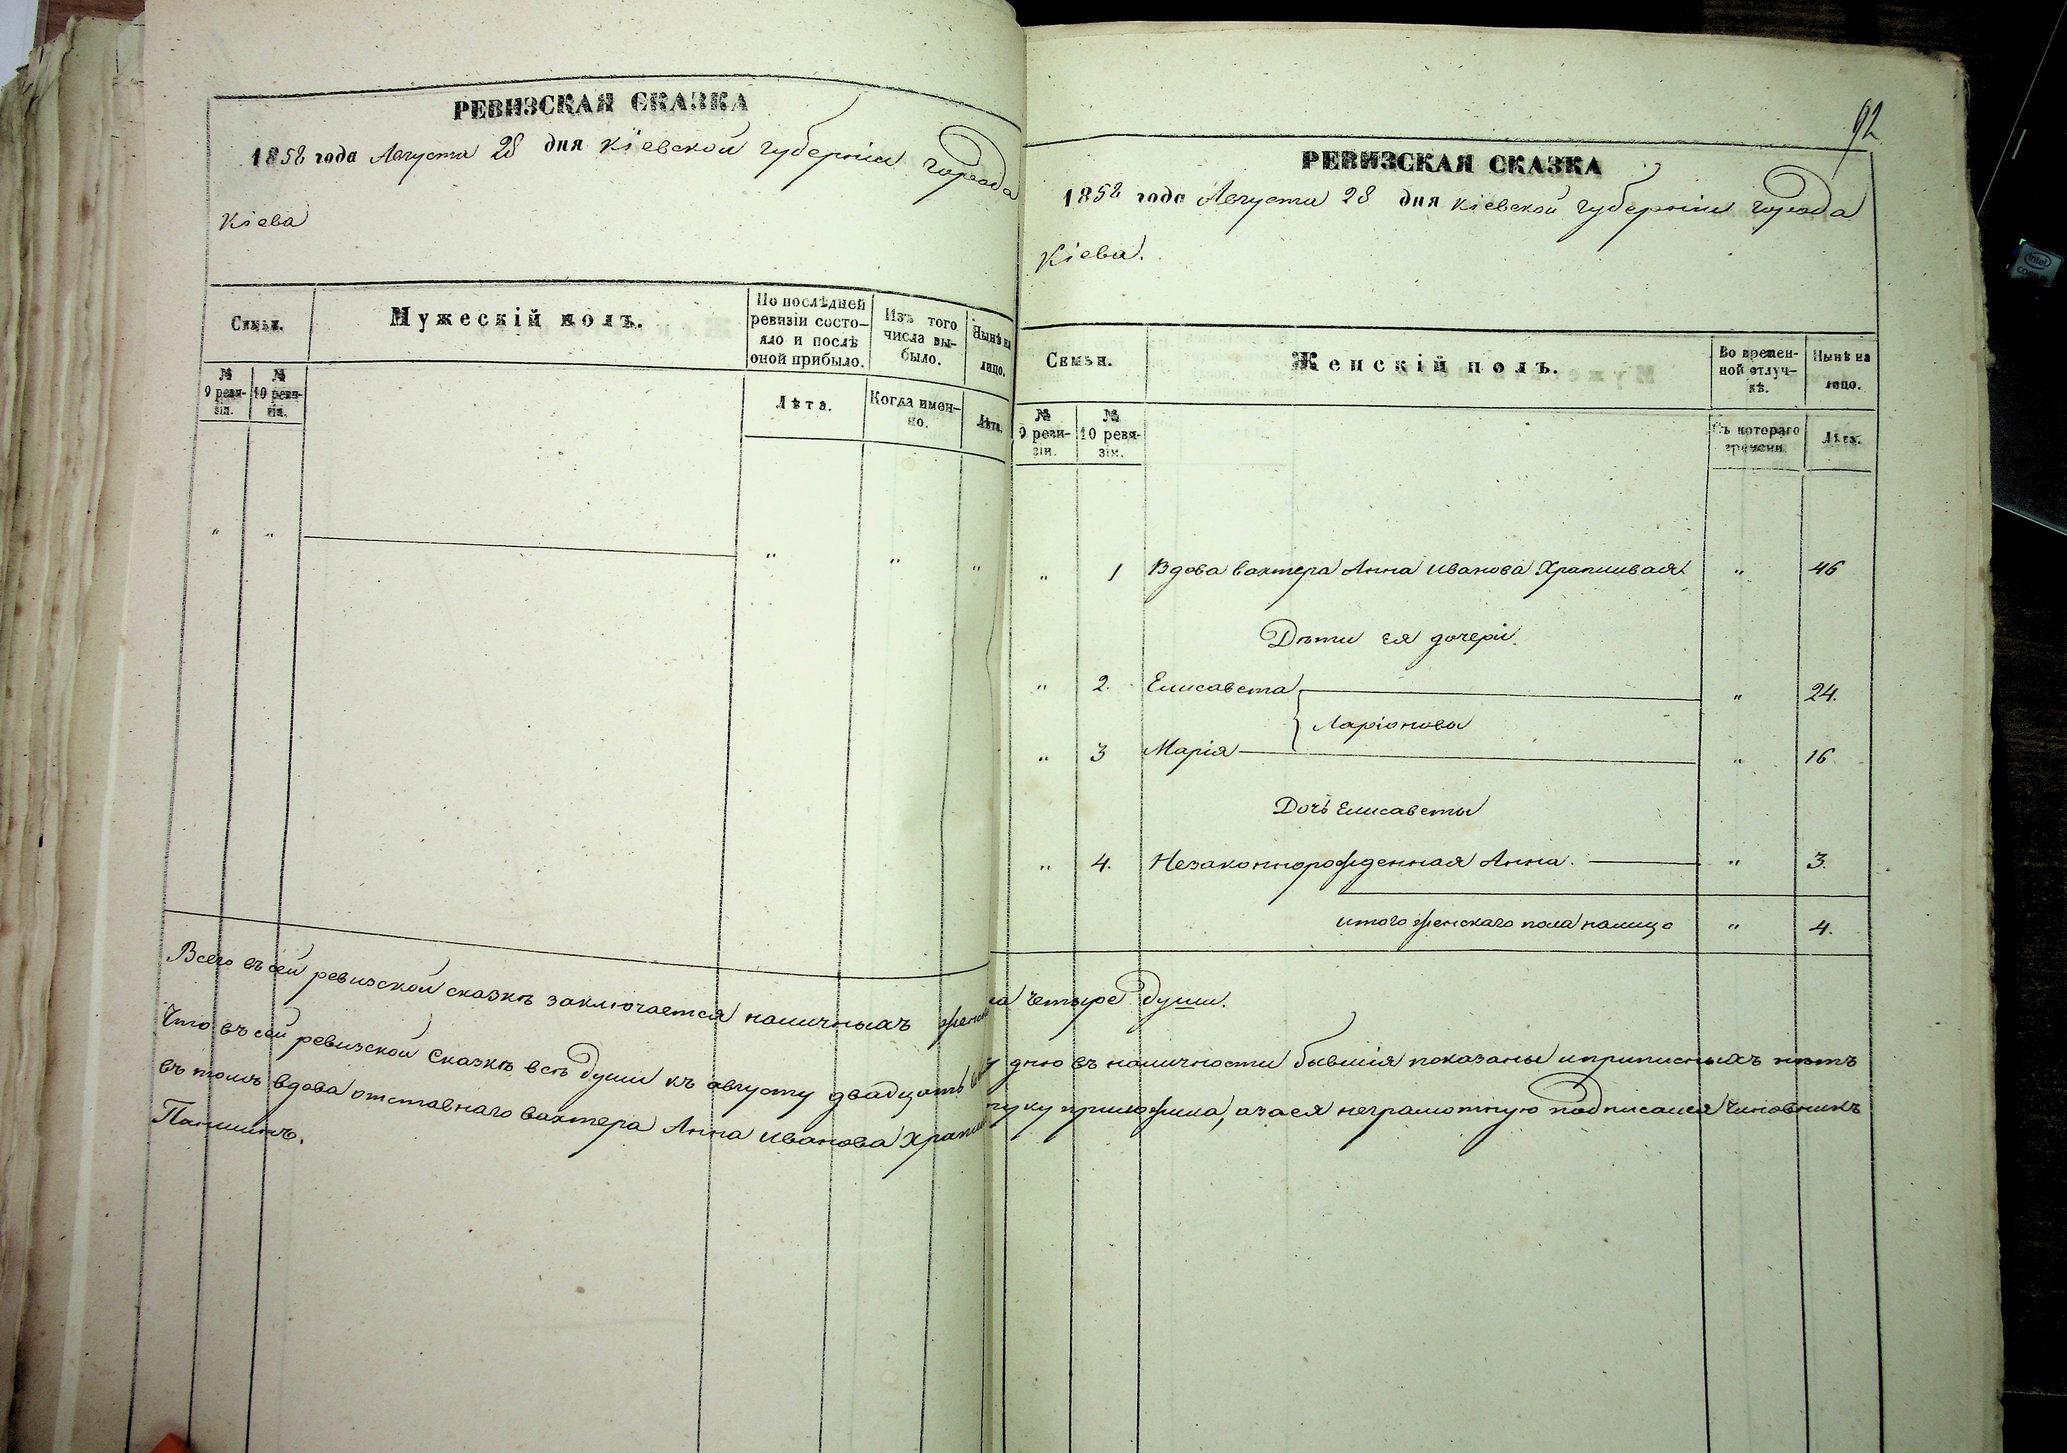 РЕВИЗСКАЯ СКАЗКА
1858 года Августа 28 дня Кіевской губерніи города
Кіева
Семьи.
Мужескій полъ.
По послѣдней ревизіи состояло и послѣ оной прибыло.
Изъ того числа выбыло.
Нынѣ на лицо.
№ 9 ревизіи.
№ 10 ревизіи.
Лѣта.
Когда именно.
Лѣта.
" " " " "
92
РЕВИЗСКАЯ СКАЗКА
1858 года Августа 28 дня Кіевской губерніи города
Кіева.
Семьи.
Женскій полъ.
Во временной отлучкѣ.
Нынѣ на лицо.
№ 9 ревизіи.
№ 10 ревизіи.
Съ котораго времени
Лѣта.
" 1 Вдова вахтера Анна Иванова Храпливая " 46
Дѣти ея дочери.
" 2. Елисавета " 24.
Ларіоновы
" 3 Марія " 16
Дочь Елисаветы
" 4. Незаконнорожденная Анна. " 3.
итого женскаго пола налицо " 4.
Всего въ сей ревизской сказкѣ заключается наличныхъ четыре души.
Что въ сей ревизской Сказкѣ всѣ души къ августу двадцать дню въ наличности бывшія показаны и приписныхъ нѣтъ
въ томъ вдова отставнаго вахтера Анна Иванова руку приложила, а за ея неграмотную подписался Чиновникъ
Паншинъ.
intel
CORE